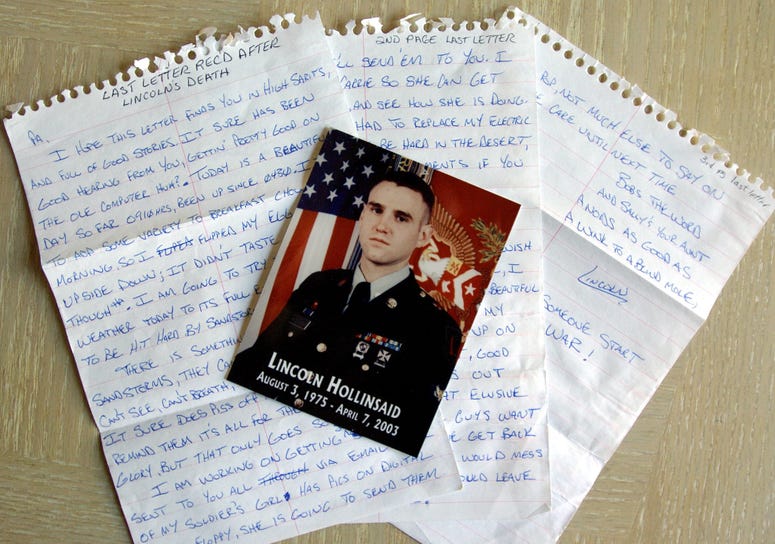 LAST LETTER REC'D AFTER
LINCOLN'S DEATH
PA,
I HOPE THIS LETTER FINDS YOU IN HIGH
AND FULL OF GOOD STORIES. IT SURE HAS BEEN
GOOD HEARING FROM YOU, GETTIN' PRETTY GOOD ON
THE OLE COMPUTER HUH? TODAY IS A BEAUTIFUL
DAY SO FAR 0916HRS, BEEN UP SINCE 0430. I
TO ADD SOME VARIETY TO BREAKFAST
MORNING, SO I FLIPPED MY EGG
UPSIDE DOWN; IT DIDN'T TASTE
THOUGH. I AM GOING TO TRY
WEATHER TODAY TO ITS FULL
TO BE HIT HARD BY
THERE IS
SANDSTORMS, THEY
CAN'T SEE, CAN'T
IT SURE DOES PISS OFF
BEHIND THEM IT'S ALL FOR THE
GLORY BUT THAT ONLY GOES SO
I AM WORKING ON GETTING
SENT TO YOU ALL THOUGH VIA EMAIL
OF MY SOLDIER'S GIRL HAS PICS ON DIGITAL
FLOPPY, SHE IS GOING TO SEND THEM
2ND PAGE LAST LETTER
SEND 'EM TO YOU. I
SO SHE CAN GET
AND SEE HOW SHE IS DOING.
HAD TO REPLACE MY ELECTRIC
BE HARD IN THE DESERT,
IF YOU
I
BEAUTIFUL
MY
UP ON
GOOD
OUT
AT ELUSIVE
GUYS WANT
GET BACK
WOULD MESS
LEAVE
NOT MUCH ELSE TO SAY ON
CARE UNTIL NEXT TIME
BOBS THE WORD
AND SALLY'S YOUR AUNT
A NODS AS GOOD AS
A WINK TO A BLIND MOLE,
LINCOLN
SOMEONE START
WAR!
LINCOLN HOLLINSAID
AUGUST 3, 1975 - APRIL 7, 2003